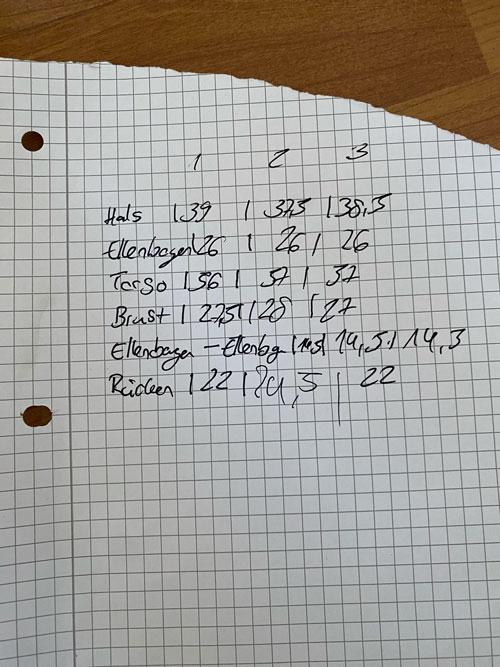 1 2 3
Hals | 39 | 37,5 | 38,5
Ellenbogen | 26 | 26 | 26
Torso | 56 | 57 | 57
Brust | 27,5 | 28 | 27
Ellenbogen - Ellenbog | 14,5 | 14,3
Rücken | 22 | 24,5 | 22